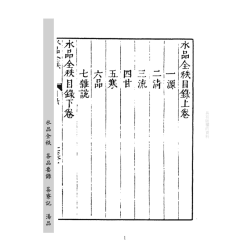 水品全秩目錄上卷
一源
二清
三流
四甘
五寒
六品
七雜說
水品全秩目錄下卷
水品全秩 茶品要錄 茶寮記 湯品
1